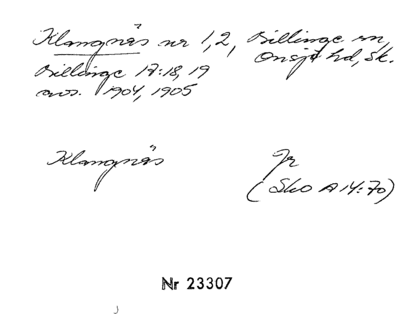 Klangnäs nr 1,2, Billinge sn,
Onsjö hd, Sk.
Billinge 17:18, 19
avs. 1904, 1905
Klangnäs Jr
(Sko A14:70)
Nr 23307